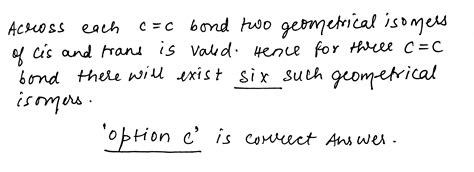 Across each c=c bond two geometrical isomers
of cis and trans is valid. Hence for three C=C
bond there will exist six such geometrical
isomers.
'option c' is correct Answer.